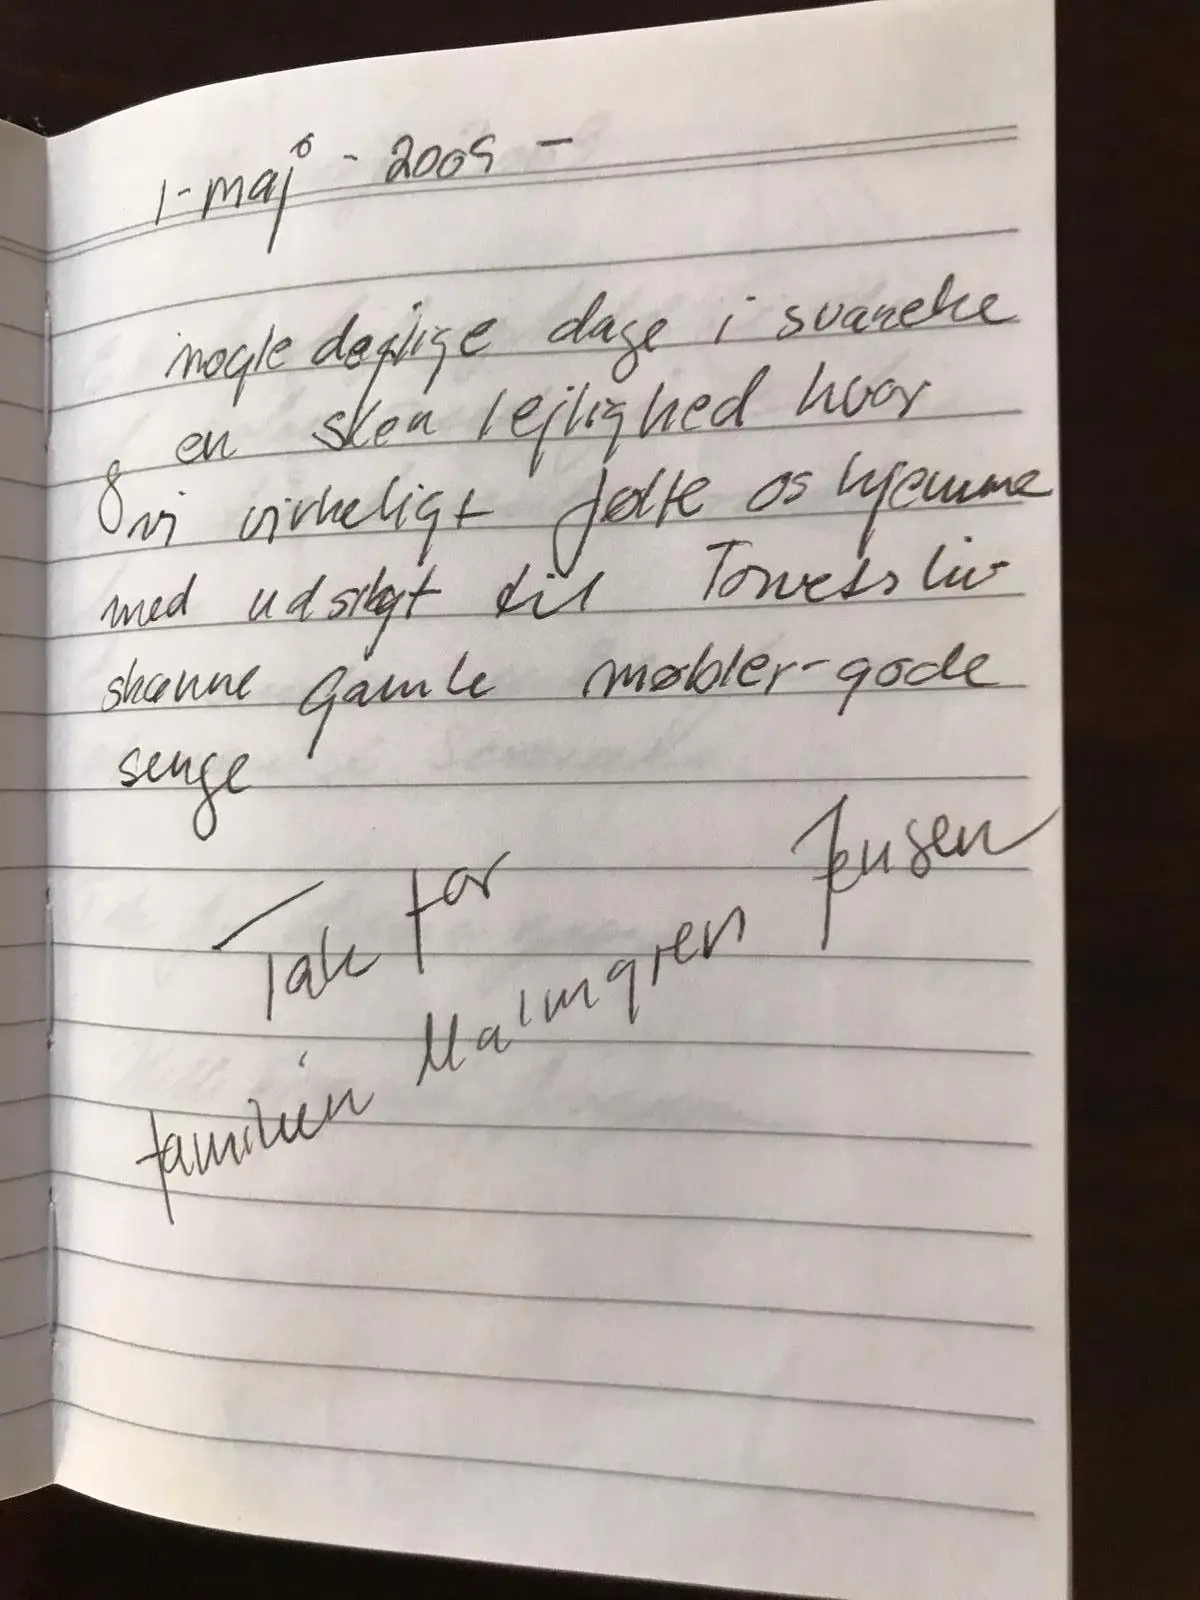 1-maj - 2009 -
nogle dejlige dage i svaneke
en skøn lejlighed hvor
vi virkeligt følte os hjemme
med udsigt til Torvets liv
skønne gamle møbler-gode
senge
Tak for
familien Malmgren Jensen